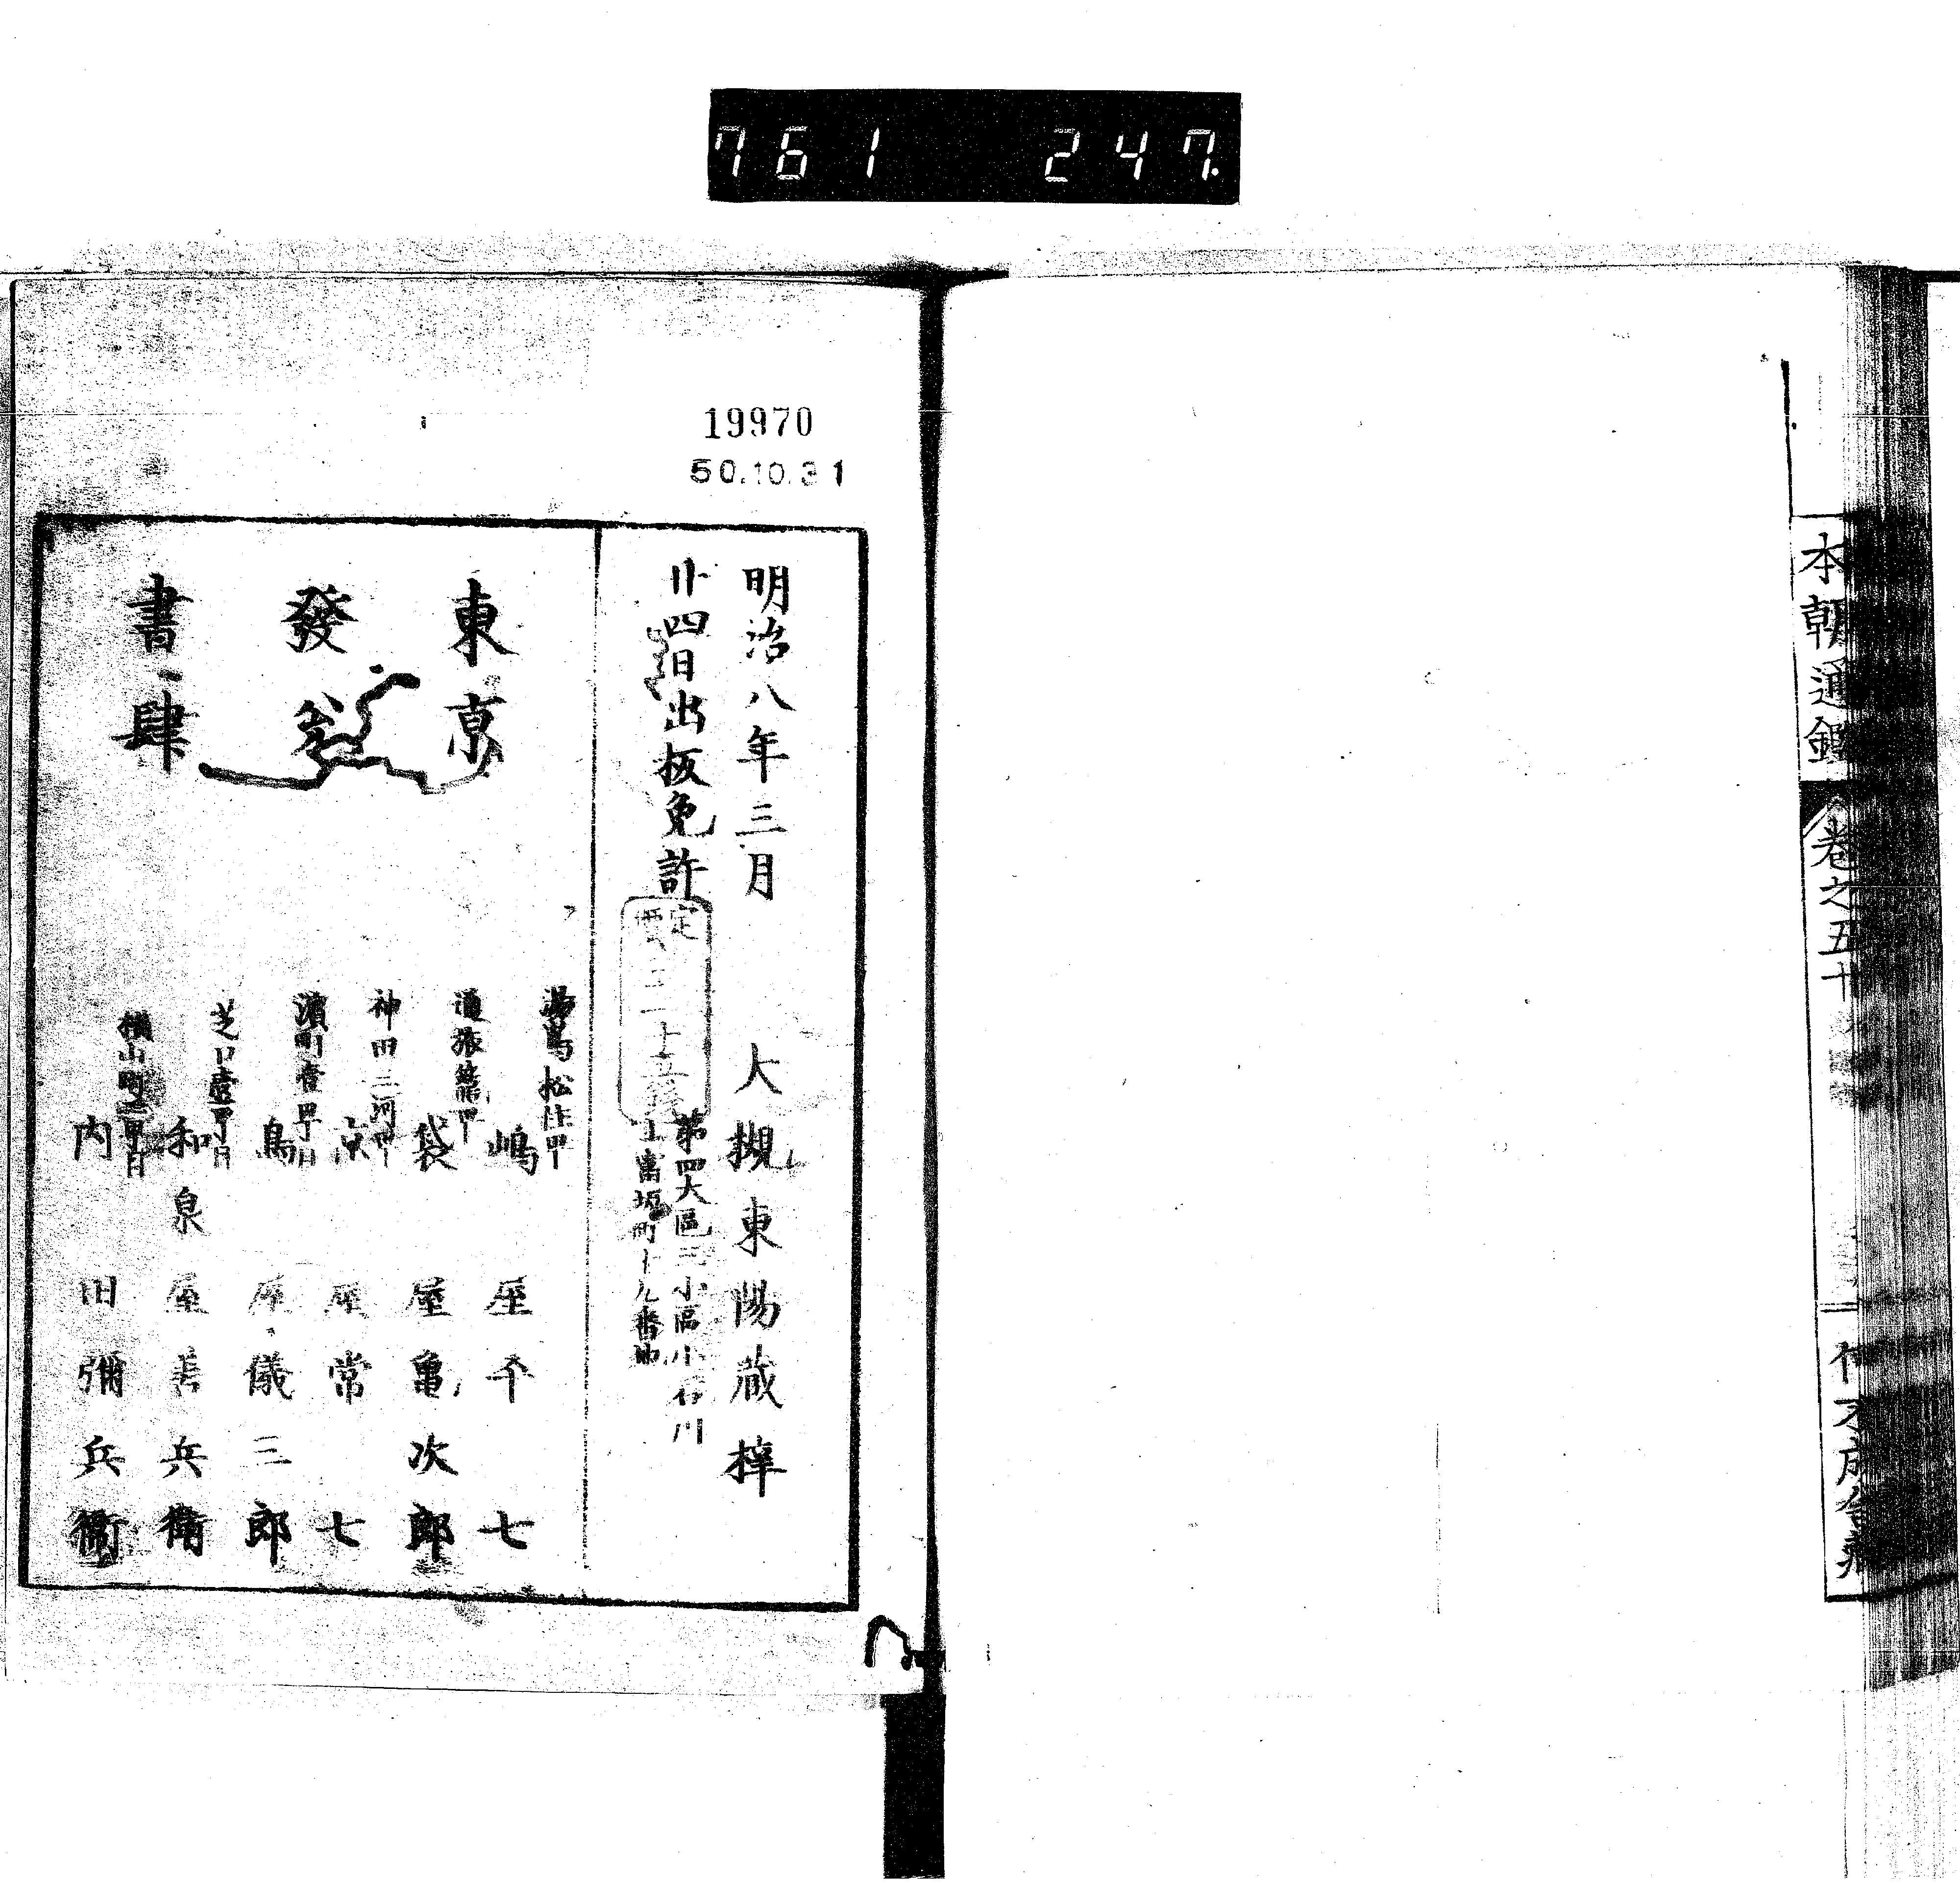 761 247.
本朝通鑑
卷之五十
19970
50.10.31
明治八年三月
廿四日出板免許
定價三十五錢
大槻東陽蔵梓
第四大區三小區小石川
上富坂町十九番地
東京
發兌
書肆
湯島松住町
嶋屋平七
通旅籠町
袋屋亀次郎
神田三河町
京屋常七
濱町壹丁目
鳥屋儀三郎
芝口壹丁目
和泉屋善兵衛
横山町三丁目
内田彌兵衛